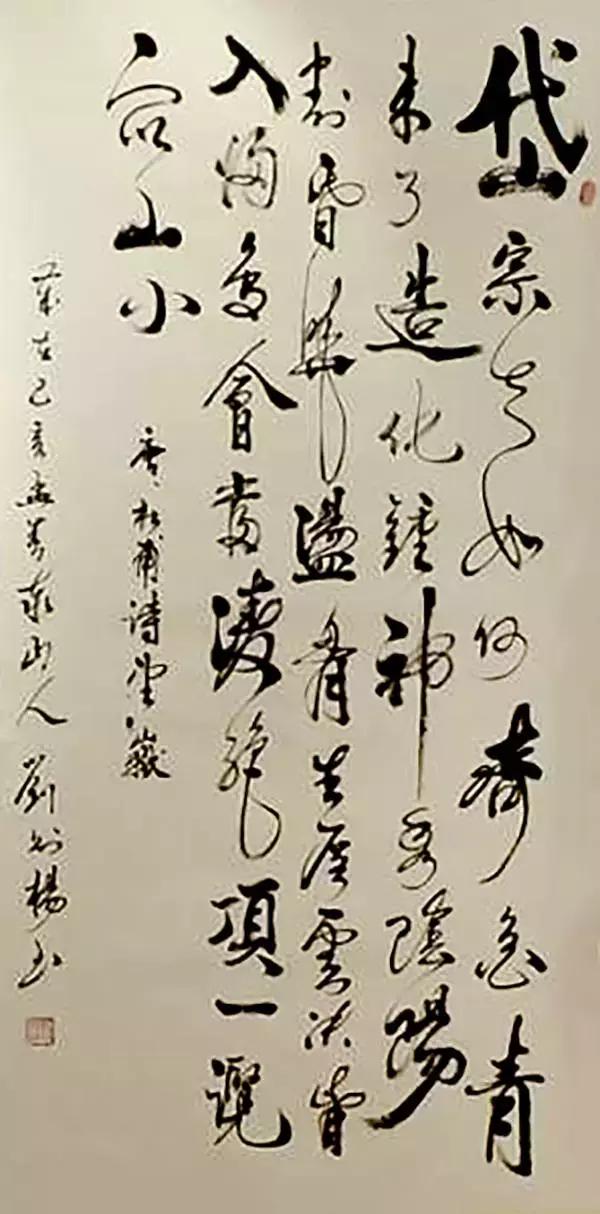 岱宗夫如何齊魯青
未了造化鍾神秀陰陽
割昏曉盪胸生層雲決眥
入歸鳥會當凌絕頂一覽
衆山小
唐杜甫詩望嶽
歲在己亥孟春泰山人劉楊書